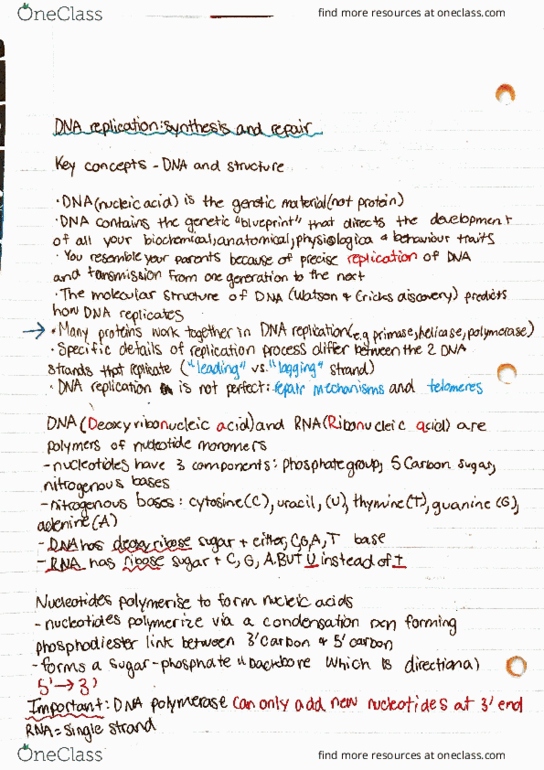 OneClass
find more resources at oneclass.com
DNA replication: synthesis and repair
Key concepts - DNA and structure
· DNA (nucleic acid) is the genetic material (not protein)
· DNA contains the genetic "blueprint" that directs the development
of all your biochemical, anatomical, physiological & behaviour traits
· You resemble your parents because of precise replication of DNA
and transmission from one generation to the next
· The molecular structure of DNA (Watson & Cricks discovery) predicts
how DNA replicates
→ · Many proteins work together in DNA replication (e.g primase, helicase, polymerase)
· Specific details of replication process differ between the 2 DNA
strands that replicate ("leading" vs. "lagging" strand)
· DNA replication is not perfect: repair mechanisms and telomeres
DNA (Deoxyribonucleic acid) and RNA (Ribonucleic acid) are
polymers of nucleotide monomers
- nucleotides have 3 components: phosphate group, 5 Carbon sugar,
nitrogenous bases
- nitrogenous bases: cytosine (C), uracil, (U), thymine (T), guanine (G),
adenine (A)
- DNA has deoxyribose sugar + either, C, G, A, T base
- RNA has ribose sugar + C, G, A. BUT U instead of T
Nucleotides polymerise to form nucleic acids
- nucleotides polymerize via a condensation rxn forming
phosphodiester link between 3' Carbon & 5' carbon
- forms a sugar-phosphate "backbone which is directional
5' → 3'
Important: DNA polymerase can only add new nucleotides at 3' end
RNA = single strand
OneClass
find more resources at oneclass.com